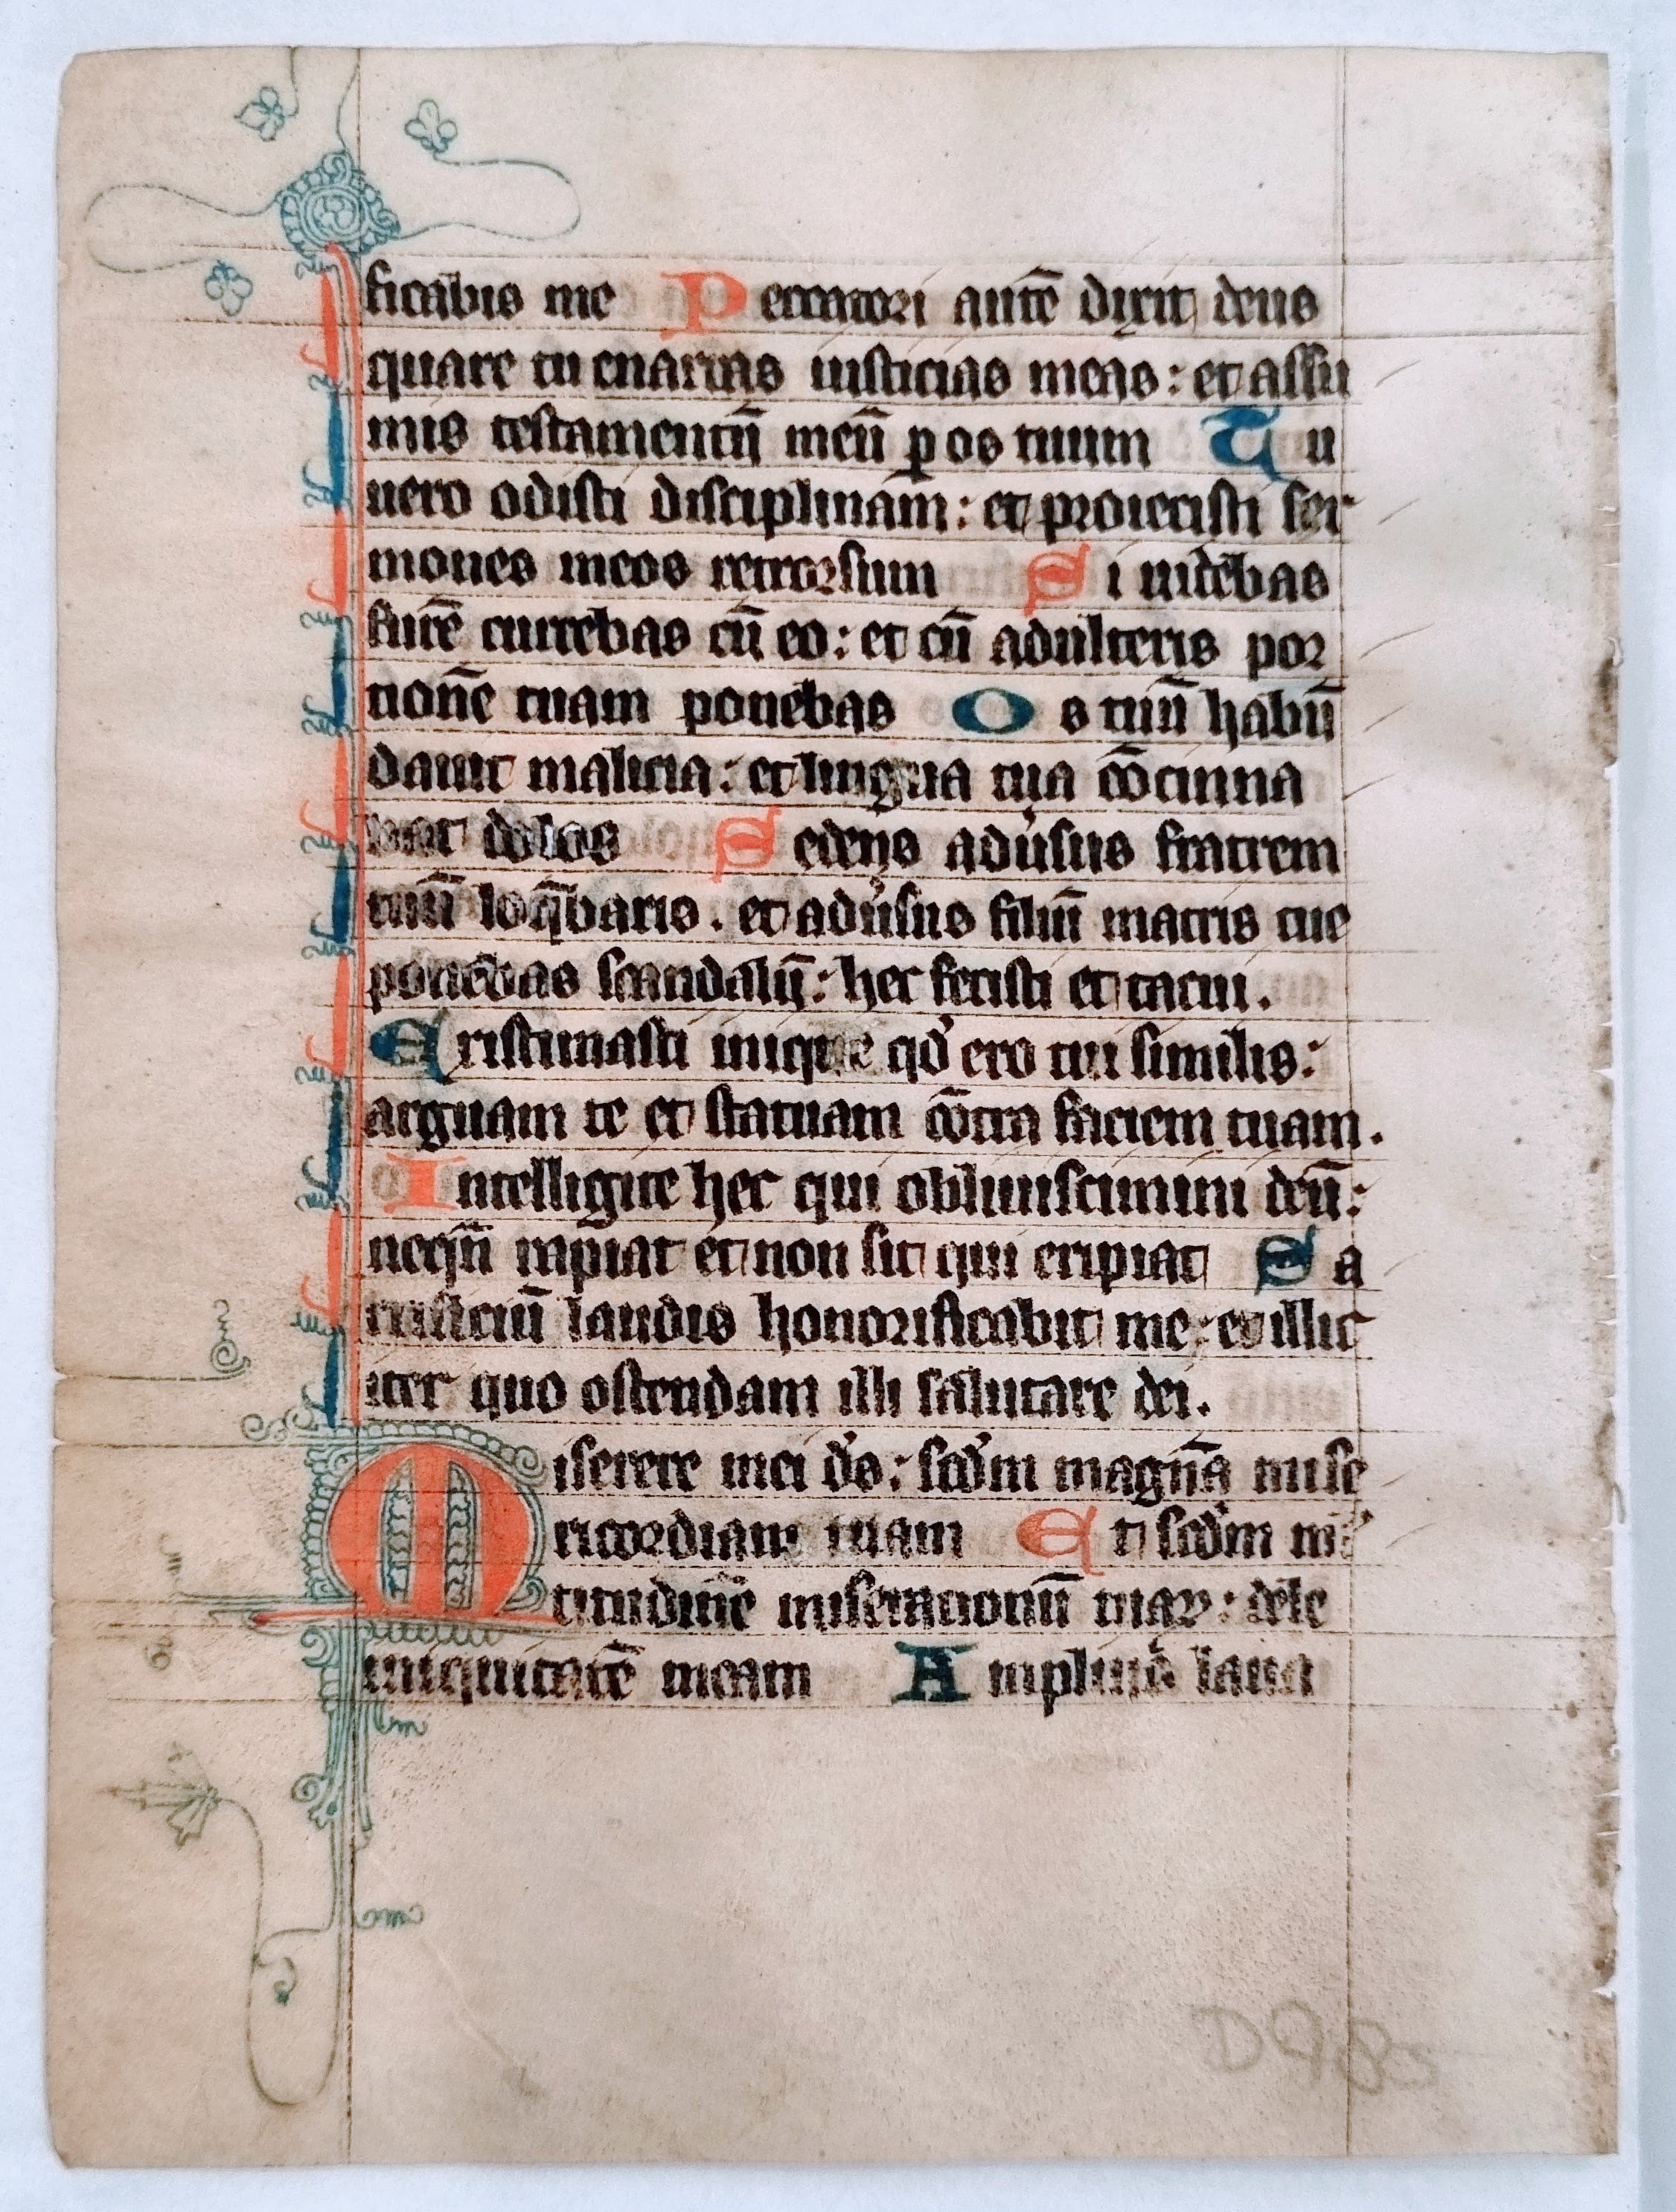 ficabis me Peccatori autē dixit deus
quare tu enarras iusticias meas: et assu
mis testamentū meū ꝑ os tuum Tu
uero odisti disciplinam: et proiecisti ser
mones meos retrorsum Si uidebas
furē currebas cū eo: et cū adulteris por
tionē tuam ponebas Os tuū habū
dauit malicia: et lingua tua cōcinna
bat dolos Sedens adu̾sus fratrem
tuū loq̄baris. et adu̾sus filiū matris tue
ponebas scandalū: hec fecisti et tacui.
Existimasti inique qd̾ ero tui similis:
arguam te et statuam cōtra faciem tuam.
Intelligite hec qui obliuiscimini deū:
neqn̄ rapiat et non sit qui eripiat Sa
crificiū laudis honorificabit me: et illic
iter quo ostendam illi salutare dei.
Miserere mei ds̾: scdm̾ magnā mise
ricordiam tuam Et scdm̾ ml̾
titudinē miserationū tuaꝝ: dele
iniquitatē meam Amplius laua
D985